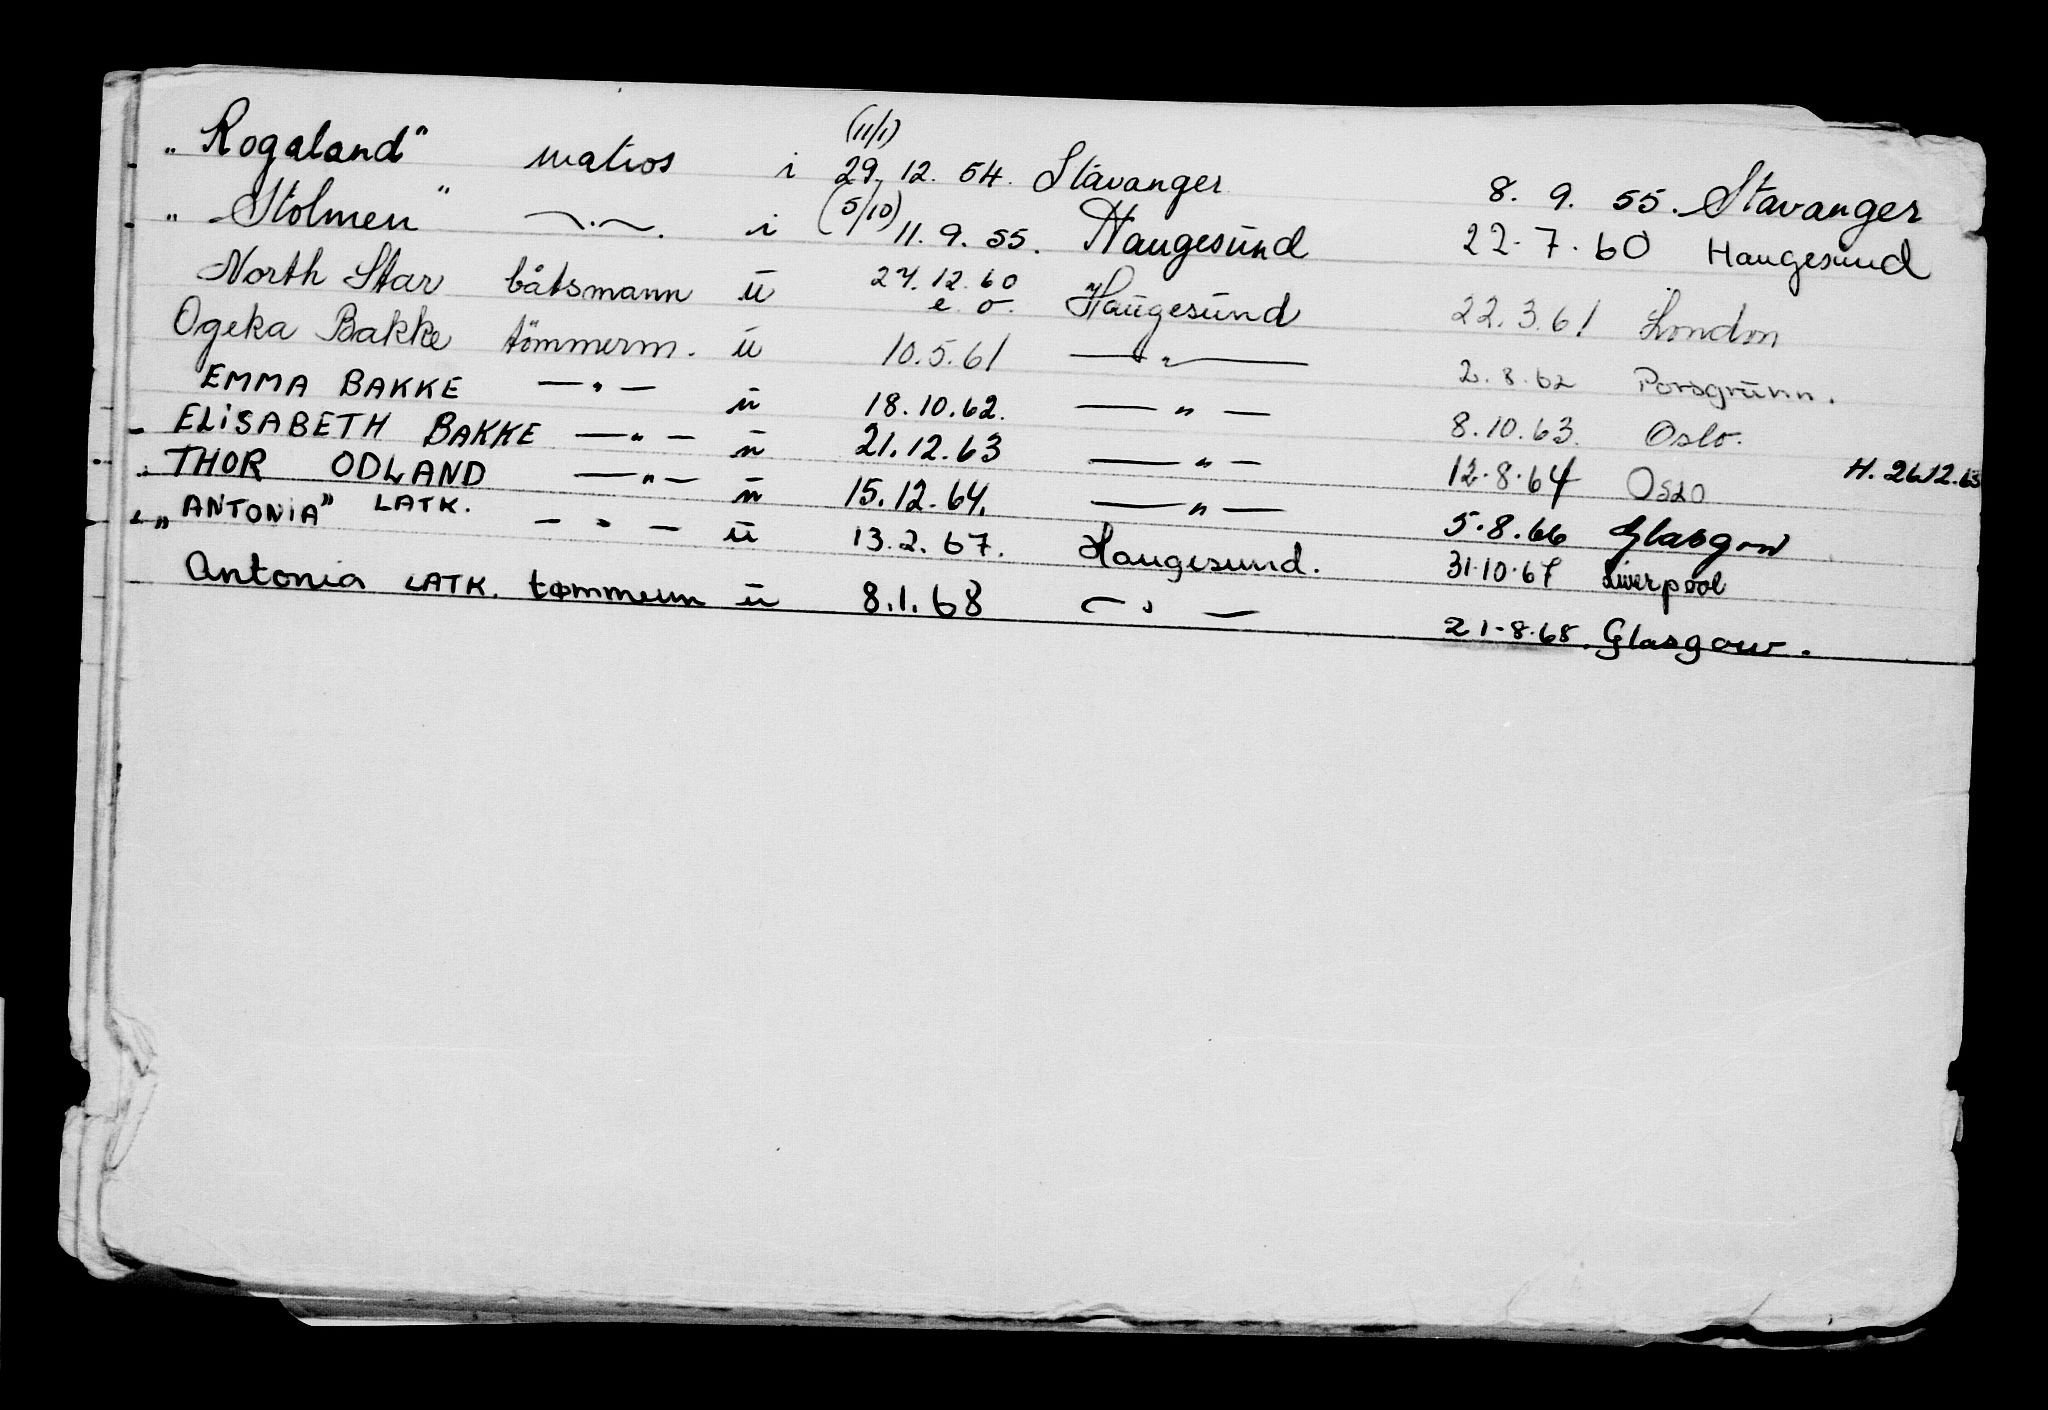 (11/1)
„ Rogaland" matros i 29. 12. 54. Stavanger 8. 9. 55. Stavanger
„ Stolmen " —.—. i (5/10) 11. 9. 55. Haugesund 22. 7. 60 Haugesund
North Star båtsmann u 27. 12. 60 e. o. Haugesund 22. 3. 61 London
Ogeka Bakke tömmerm. u 10. 5. 61 — " — 2. 8. 62 Porsgrunn.
EMMA BAKKE — " — u 18. 10. 62. — " — 8. 10. 63. Oslo.
ELISABETH BAKKE — " — u 21. 12. 63 — " — 12. 8. 64 Oslo H. 26.12.63
THOR ODLAND — " — u 15. 12. 64. — " — 5. 8. 66 Glasgow
„ ANTONIA" LATK. — " — u 13. 2. 67. Haugesund. 31. 10. 67 Liverpool
Antonia LATK. tømmerm u 8. 1. 68 — " — 21-8-68. Glasgow.